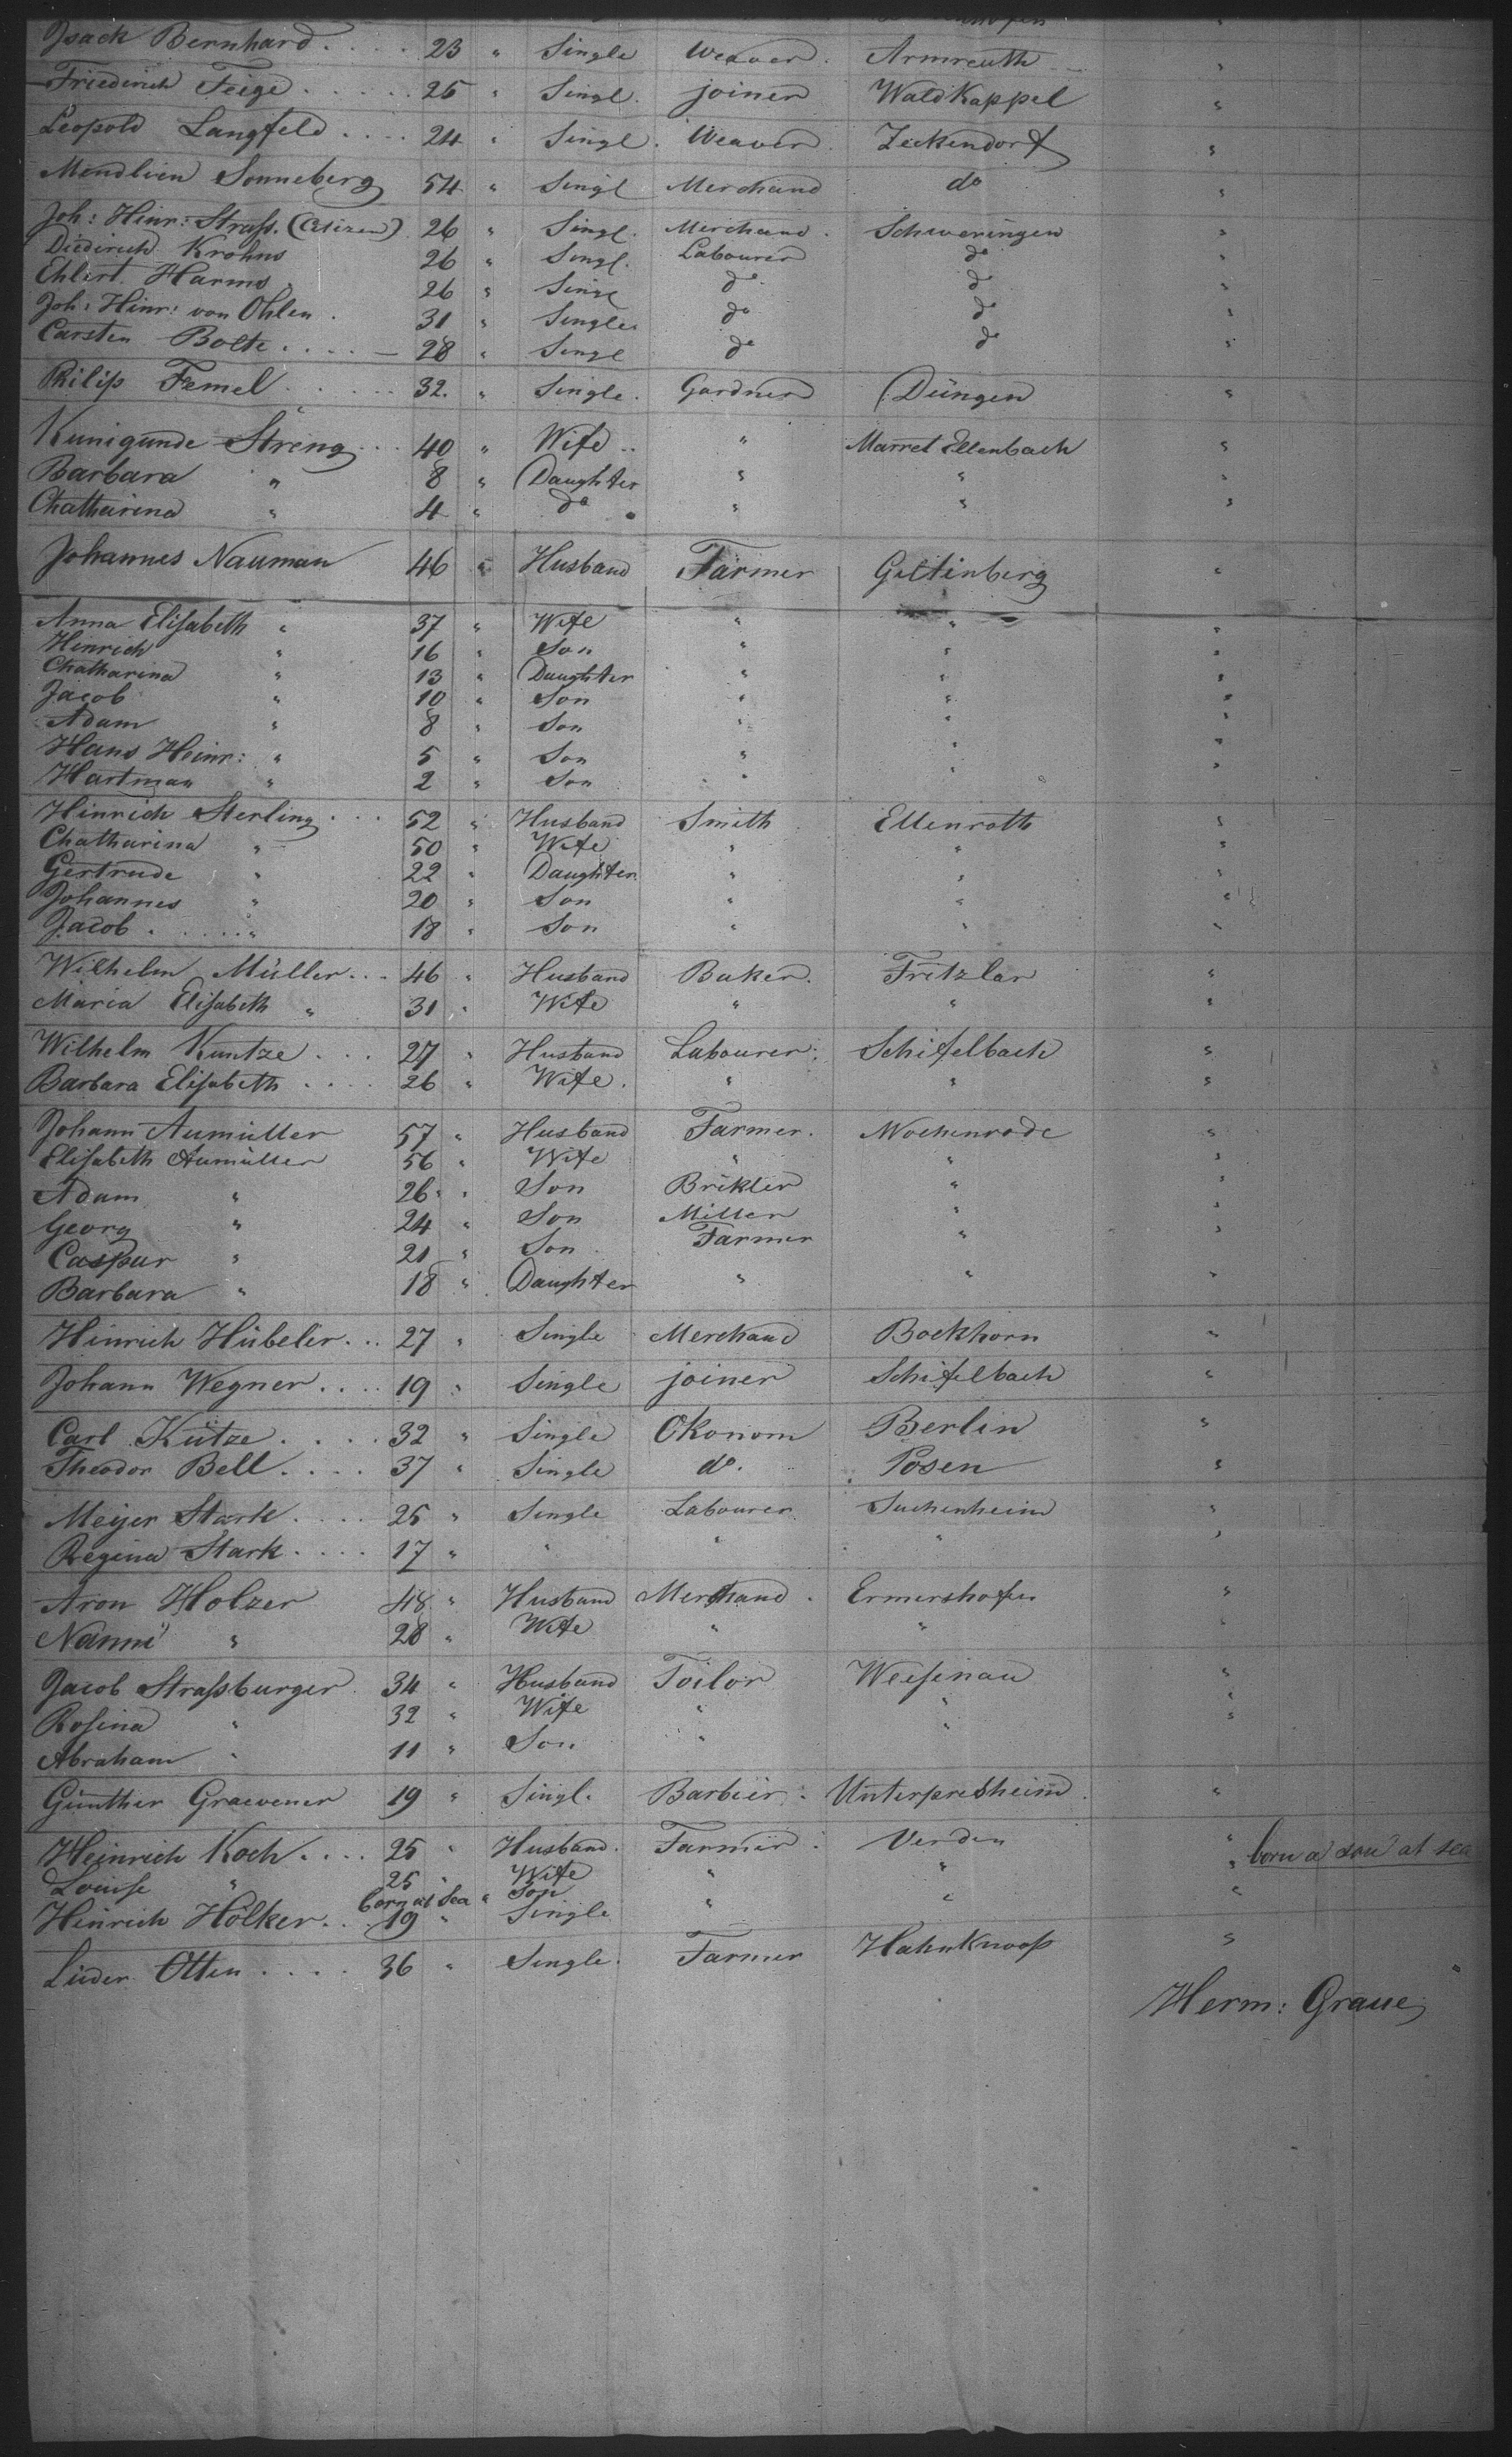 Isack Bernhard . . . . 23 " Single Weaver . Armreuth "
Friederich Feige . . . . . 25 " Singl. joiner Wald Kappel "
Leopold Langfeld . . . . 24 " Singl . Weaver Zeckendorf "
Mendlien Sonneberg 54 " Singl Merchand do "
Joh: Hinr: Strass. (Citizen) 26 " Singl. Merchand . Schweringen "
Diedirich Krohns 26 " Singl. Labourer do "
Ehlert Harms 26 " Singl do do "
Joh: Hinr: von Ohlen . 31 " Single do do "
Carsten Bolte . . . . 28 " Singl do do "
Philip Femel . . . . . 32. " Single. Gardner Düngen "
Kunigunde Streng . . 40 " Wife .. " Marret Ellenbach "
Barbara " 8 " Daughter " " "
Chatharina " 4 " do " " "
Johannes Nauman 46 " Husband Farmer Geltinberg "
Anna Elisabeth " 37 " Wife " " "
Hinrich " 16 " Son " " "
Chatharina " 13 " Daughter " " "
Jacob " 10 " Son " " "
Adam " 8 " Son " " "
Hans Heinr: " 5 " Son " " "
Hartman " 2 " Son " " "
Hinrich Sterling . . . 52 " Husband Smith Ellenroth "
Chatharina " 50 " Wife " " "
Gertrude " 22 " Daughter " " "
Johannes " 20 " Son " " "
Jacob . . . . . " 18 " Son " " "
Wilhelm Müller . . . 46 " Husband Baker. Fritzlar "
Maria Elisabeth " 31 " Wife " " "
Wilhelm Kuntze . . . 27 " Husband Labourer. Schifelbach "
Barbara Elisabeth . . . . 26 " Wife. " " "
Johann Aumüller 57 " Husband Farmer. Mochenrode "
Elisabeth Aumüller 56 " Wife " " "
Adam " 26 " Son Brikler " "
Georg " 24 " Son Miller " "
Caspar " 21 " Son Farmer " "
Barbara " 18 " Daughter " " "
Hinrich Hübeler . . . 27 " Single Merchand Bockhorn "
Johann Wegner . . . . 19 " Single joiner Schifelbach "
Carl Kütze . . . . 32 " Single Okonom Berlin "
Theodor Bell . . . . 37 " Single do. Posen "
Meijer Stark . . . . 25 " Single Labourer Suchenheim "
Regina Stark . . . . 17 " " " " "
Aron Holzer 48 " Husband Merchand . Ermershofen "
Nanni " 28 " Wife " " "
Jacob Strassburger 34 " Husband Toilor Weisenau "
Rosina " 32 " Wife " " "
Abraham " 11 " Son " " "
Günther Graevener 19 " Singl. Barbier . Unterpresheim . "
Heinrich Koch . . . . 25 " Husband . Farmer . Verden "
Louise " 25 " Wife " " " born a son at sea
born at Sea " Son " " "
Hinrich Hölker . . . 19 " Single
Lüder Otten . . . . 36 " Single. Farmer Hahnknoop "
Herm: Graue